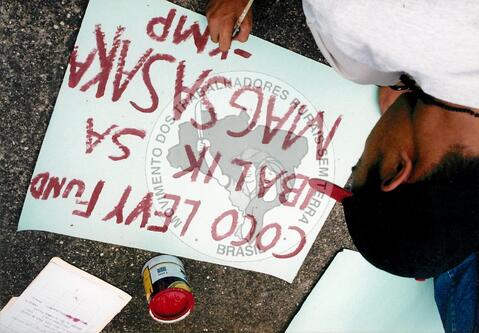 COCO LEVY FUND
IBALIK SA
MAGSASAKA
-KMP
MOVIMENTO DOS TRABALHADORES RURAIS SEM TERRA
BRASIL